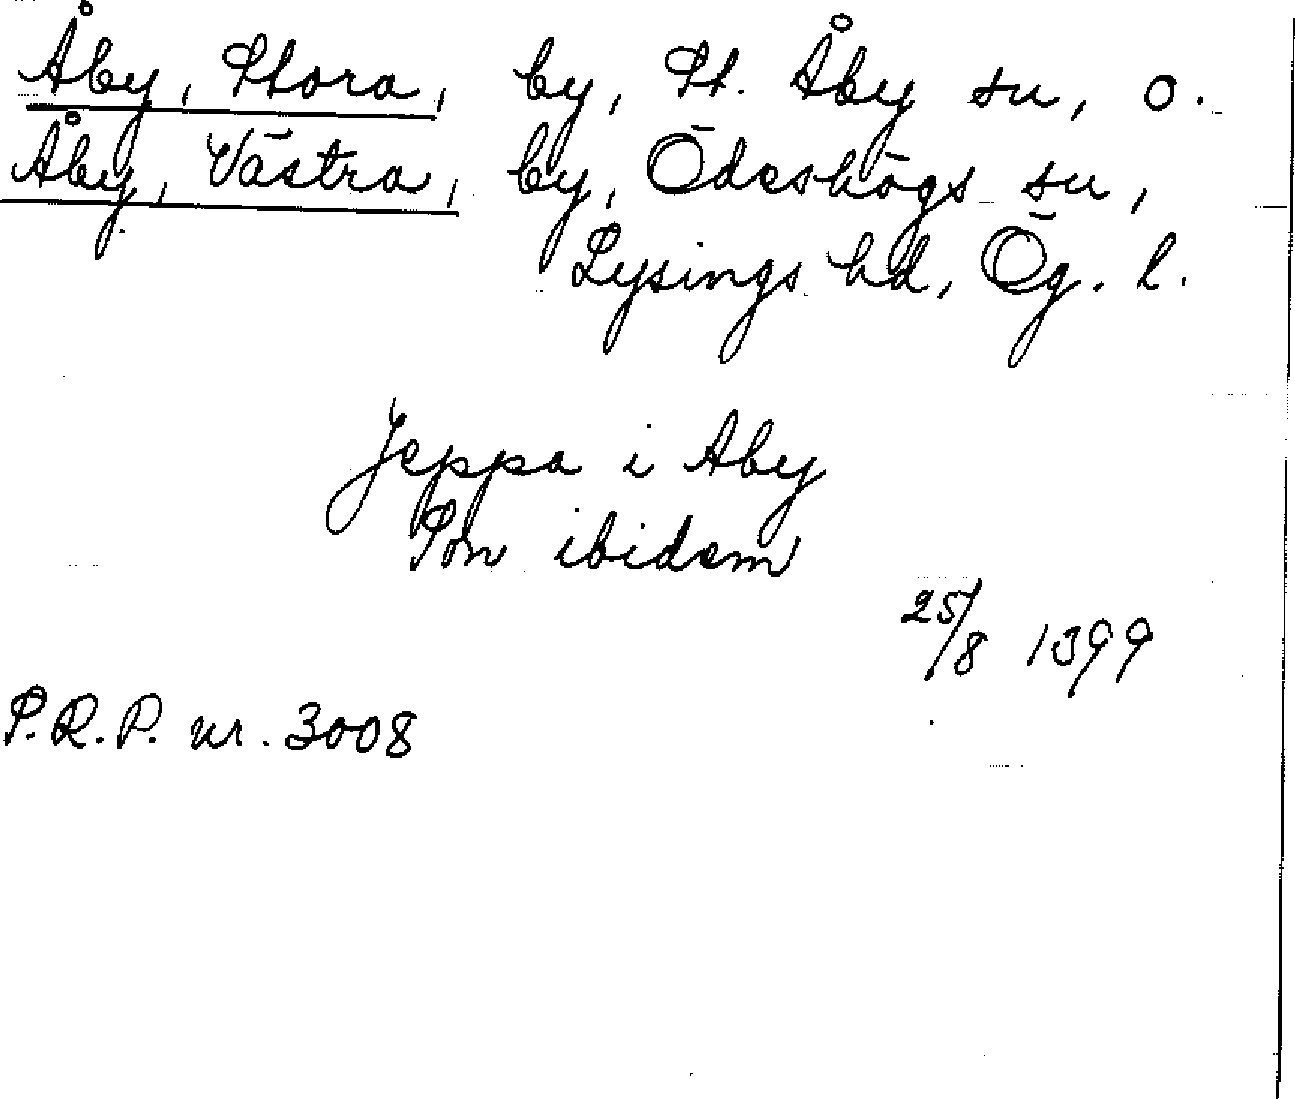 Åby, Stora, by, St. Åby sn, o.
Åby, Västra, by, Ödeshögs sn,
Lysings hd, Ög. l.
Jeppa i Aby
Son ibidem
25/8 1399
P.R.P. nr. 3008